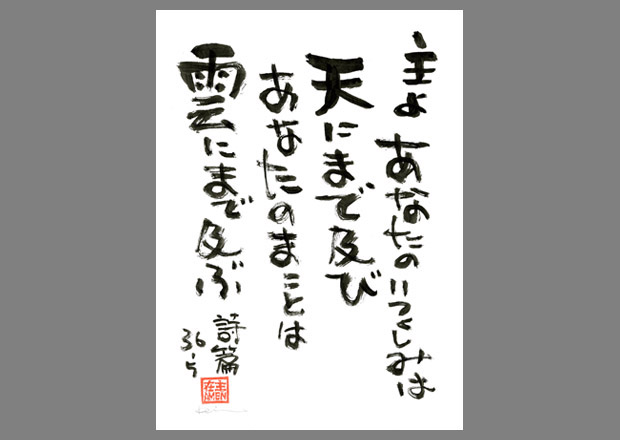 主よ あなたのいつくしみは
天にまで及び
あなたのまことは
雲にまで及ぶ
詩篇
36-5